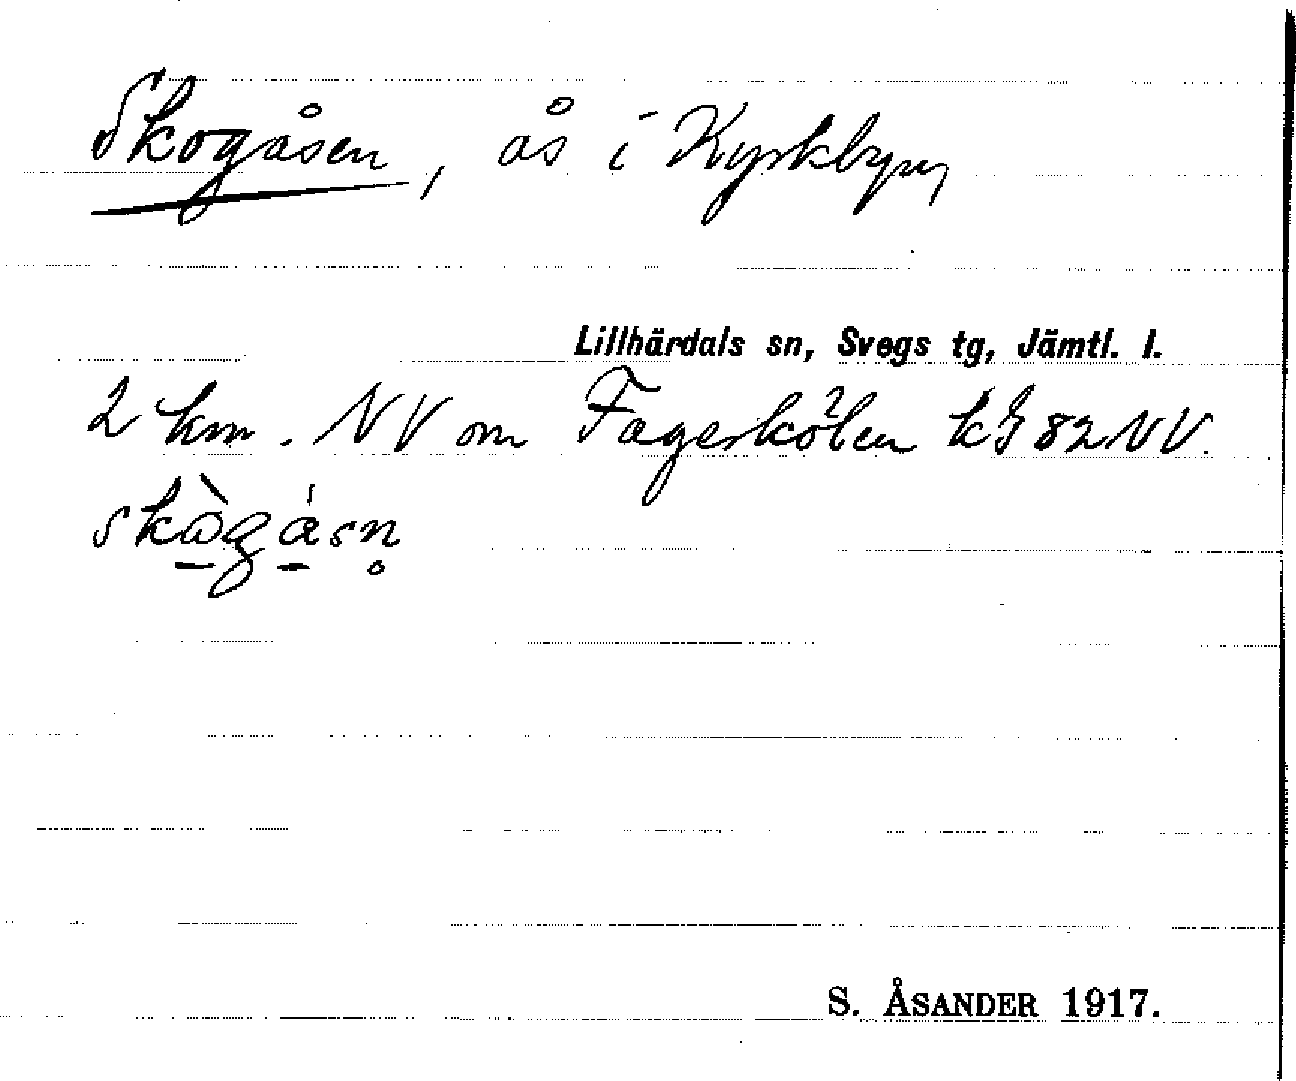 Skogåsen, ås i Kyrkbyn,
Lillhärdals sn, Svegs tg, Jämtl. l.
2 km. NV om Fagerkölen k 82 NV.
skògásn̥
S. ÅSANDER 1917.